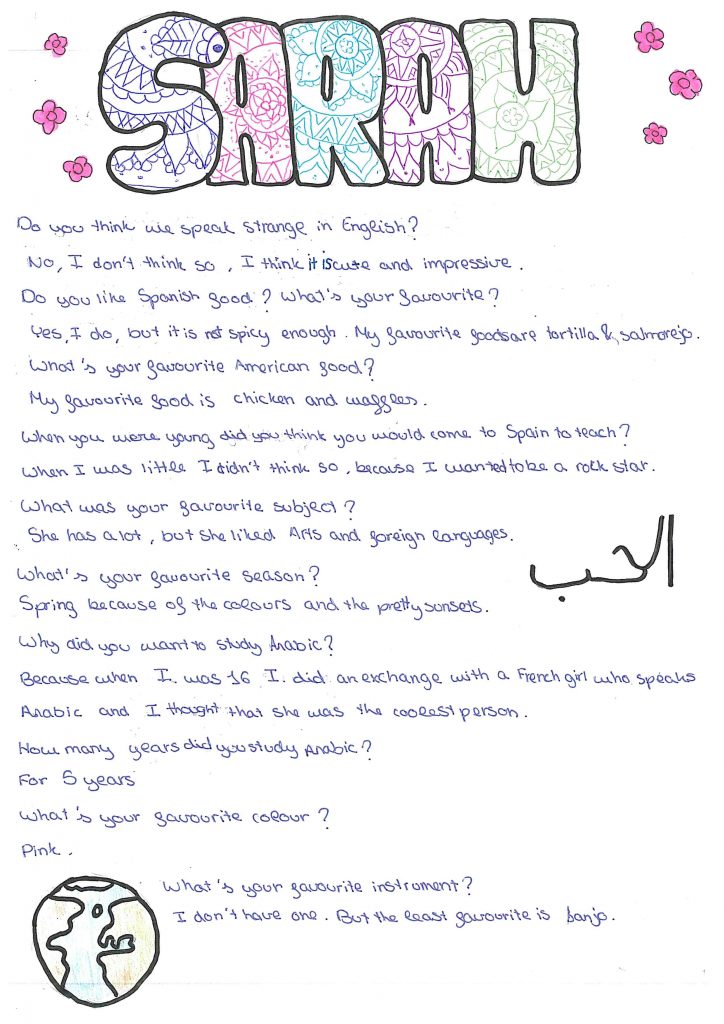 SARAH
Do you think we speak strange in English?
No, I don't think so, I think it is cute and impressive.
Do you like Spanish food? What's your favourite?
Yes, I do, but it is not spicy enough. My favourite foods are tortilla & salmorejo.
What's your favourite American food?
My favourite food is chicken and waffles.
When you were young did you think you would come to Spain to teach?
When I was little I didn't think so, because I wanted to be a rock star.
What was your favourite subject?
She has a lot, but she liked Arts and foreign languages.
الحب
What's your favourite season?
Spring because of the colours and the pretty sunsets.
Why did you want to study Arabic?
Because when I was 16 I did an exchange with a French girl who speaks
Arabic and I thought that she was the coolest person.
How many years did you study Arabic?
For 5 years
What's your favourite colour?
Pink.
What's your favourite instrument?
I don't have one. But the least favourite is banjo.